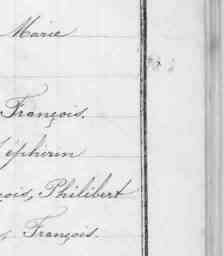 Marie
François.
Zéphirin
çois, Philibert
, François.